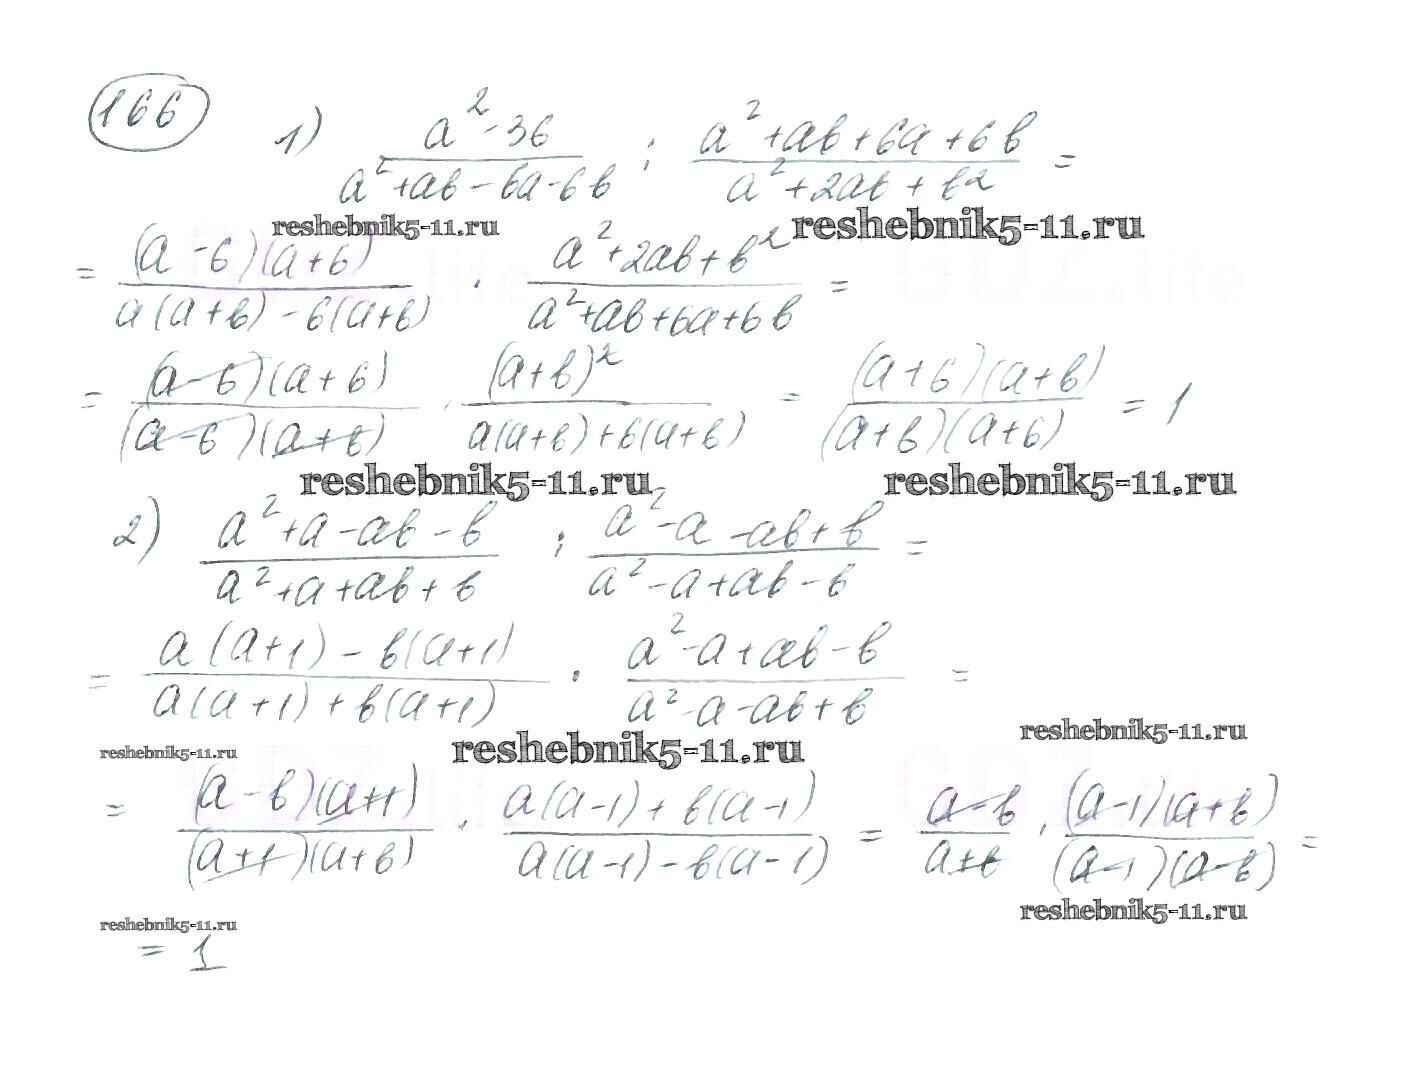 166
1) a² - 36 / a² + ab - 6a - 6b : a² + ab + 6a + 6b / a² + 2ab + b² =
reshebnik5-11.ru reshebnik5-11.ru
= (a - 6)(a + 6) / a(a + b) - 6(a + b) · a² + 2ab + b² / a² + ab + 6a + 6b =
= (a - 6)(a + 6) / (a - 6)(a + b) · (a + b)² / a(a + b) + 6(a + b) = (a + 6)(a + b) / (a + b)(a + 6) = 1
reshebnik5-11.ru reshebnik5-11.ru
2) a² + a - ab - b / a² + a + ab + b : a² - a - ab + b / a² - a + ab - b =
= a(a + 1) - b(a + 1) / a(a + 1) + b(a + 1) · a² - a + ab - b / a² - a - ab + b =
reshebnik5-11.ru reshebnik5-11.ru reshebnik5-11.ru
= (a - b)(a + 1) / (a + 1)(a + b) · a(a - 1) + b(a - 1) / a(a - 1) - b(a - 1) = a - b / a + b · (a - 1)(a + b) / (a - 1)(a - b) =
reshebnik5-11.ru reshebnik5-11.ru
= 1